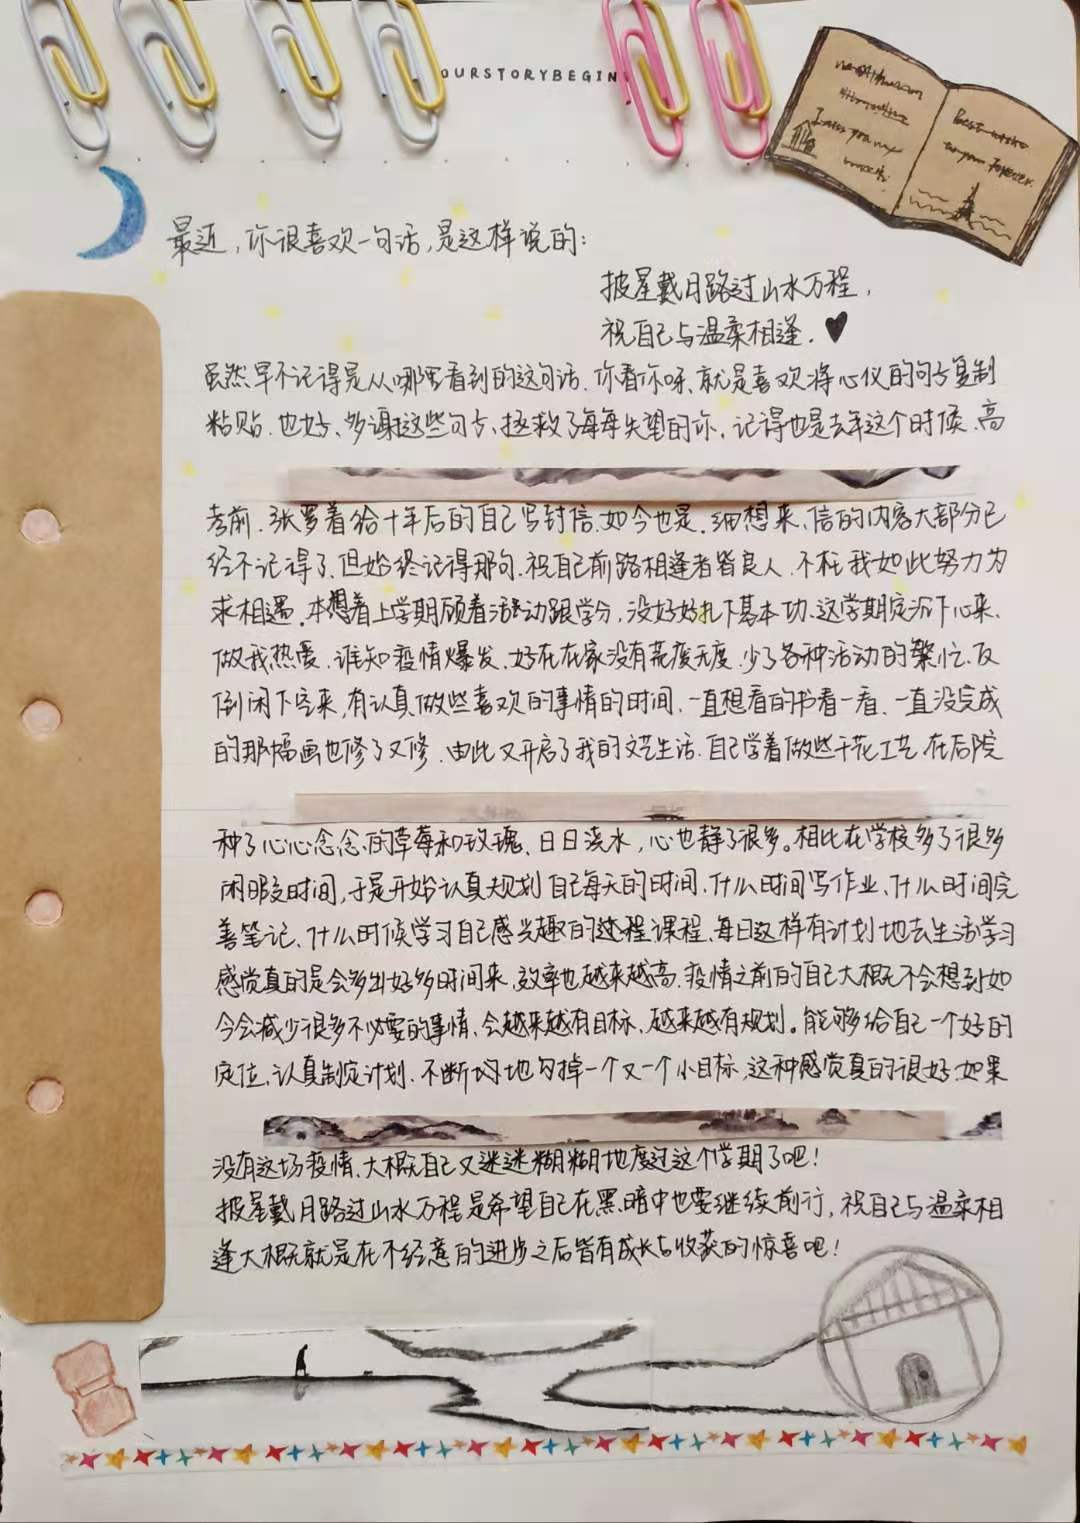 OURSTORYBEGIN
Best
forever.
最近,你很喜欢一句话,是这样说的:
披星戴月路过山水万程,
祝自己与温柔相逢.
虽然早不记得是从哪里看到的这句话.你看你呀,就是喜欢将心仪的句子复制
粘贴.也好、多谢这些句子、拯救了每每失望的你.记得也是去年这个时候、高
考前.张罗着给十年后的自己写封信.如今也是.细想来、信的内容大部分已
经不记得了.但始终记得那句.祝自己前路相逢者皆良人.不枉我如此努力为
求相遇.本想着上学期顾着活动跟学分,没好好扎下基本功.这学期定沉下心来、
做我热爱.谁知疫情爆发、好在在家没有荒废无度.少了各种活动的繁忙.反
倒闲下空来,有认真做些喜欢的事情的时间.一直想看的书看一看、一直没完成
的那幅画也修了又修.由此又开启了我的文艺生活.自己学着做些干花工艺.在后院
种了心心念念的草莓和玫瑰、日日浇水,心也静了很多。相比在学校多了很多
闲暇时间,于是开始认真规划自己每天的时间.什么时间写作业、什么时间完
善笔记、什么时候学习自己感兴趣的课程.每日这样有计划地去生活学习
感觉真的是会多出好多时间来、效率也越来越高.疫情之前的自己大概不会想到如
今会减少很多不必要的事情、会越来越有目标、越来越有规划。能够给自己一个好的
定位、认真制定计划.不断地勾掉一个又一个小目标,这种感觉真的很好.如果
没有这场疫情、大概自己又迷迷糊糊地度过这个学期了吧!
披星戴月路过山水万程是希望自己在黑暗中也要继续前行,祝自己与温柔相
逢大概就是在不经意的进步之后皆有成长与收获的惊喜吧!